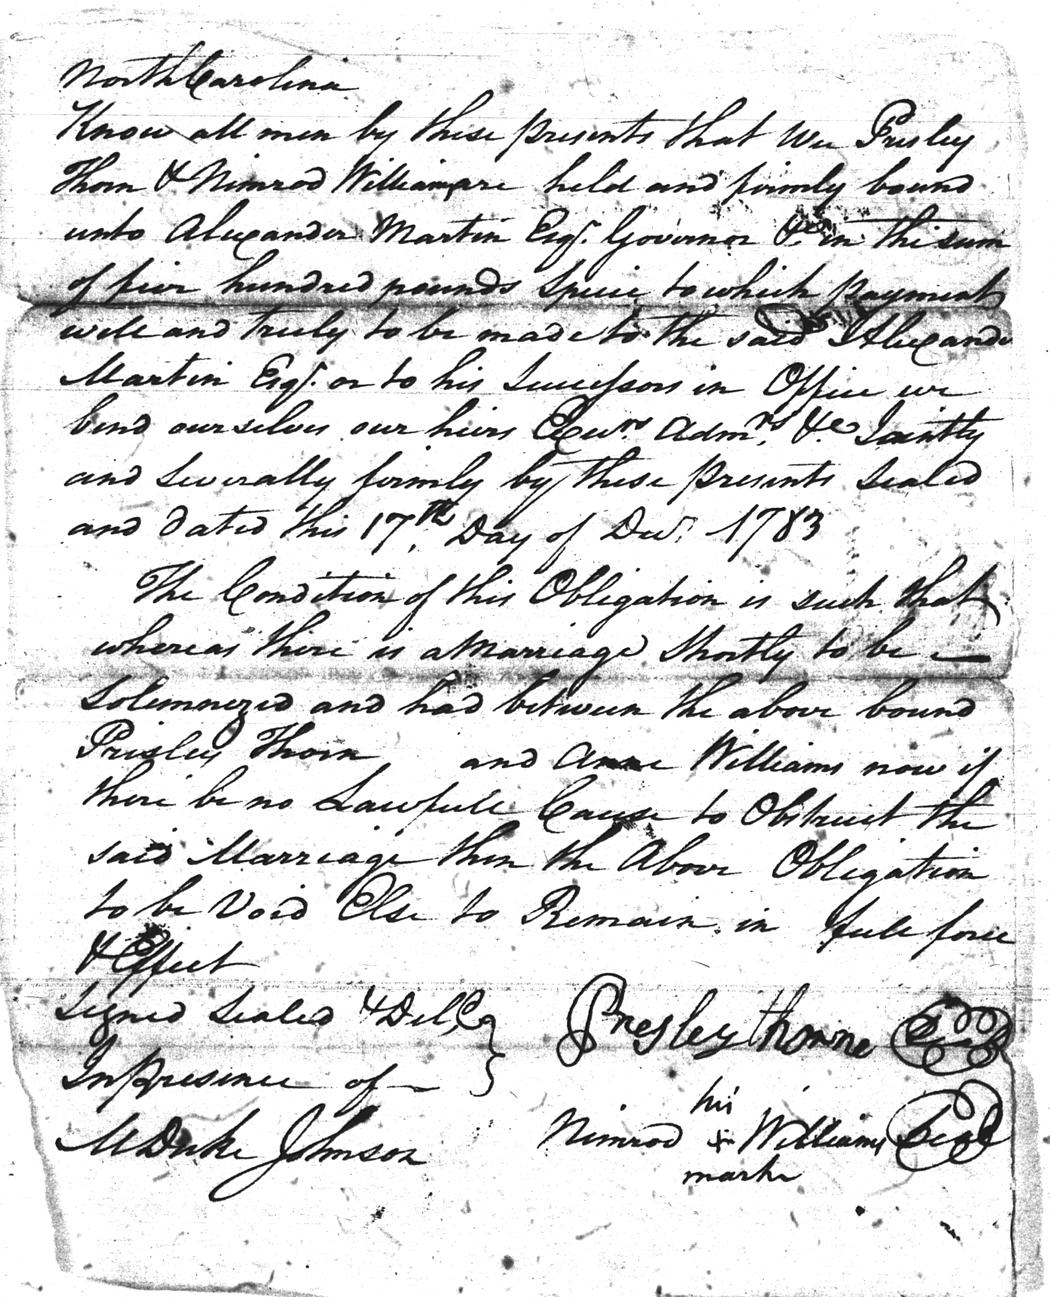 North Carolina
Know all men by these presents that We Presley
Thorn & Nimrod Williams are held and firmly bound
unto Alexander Martin Esqr. Governor &c. in the sum
of five hundred pounds Specie to which payment
well and truly to be made to the said Alexander
Martin Esqr. or to his Successors in Office we
bind ourselves our heirs Exers. Admrs. &c. Jointly
and Severally firmly by these presents Sealed
and dated this 17th. Day of Decr. 1783
The Condition of this Obligation is such that
whereas there is a Marriage Shortly to be
Solemnized and had between the above bound
Presley Thorn and Anne Williams now if
there be no Lawfull Cause to Obstruct the
said Marriage then the Above Obligation
to be Void Else to Remain in full force
& Effect
Signed Sealed & Deld.
In presence of
Presley thorne Seal
MDuke Johnson
his
Nimrod + Williams Seal
mark